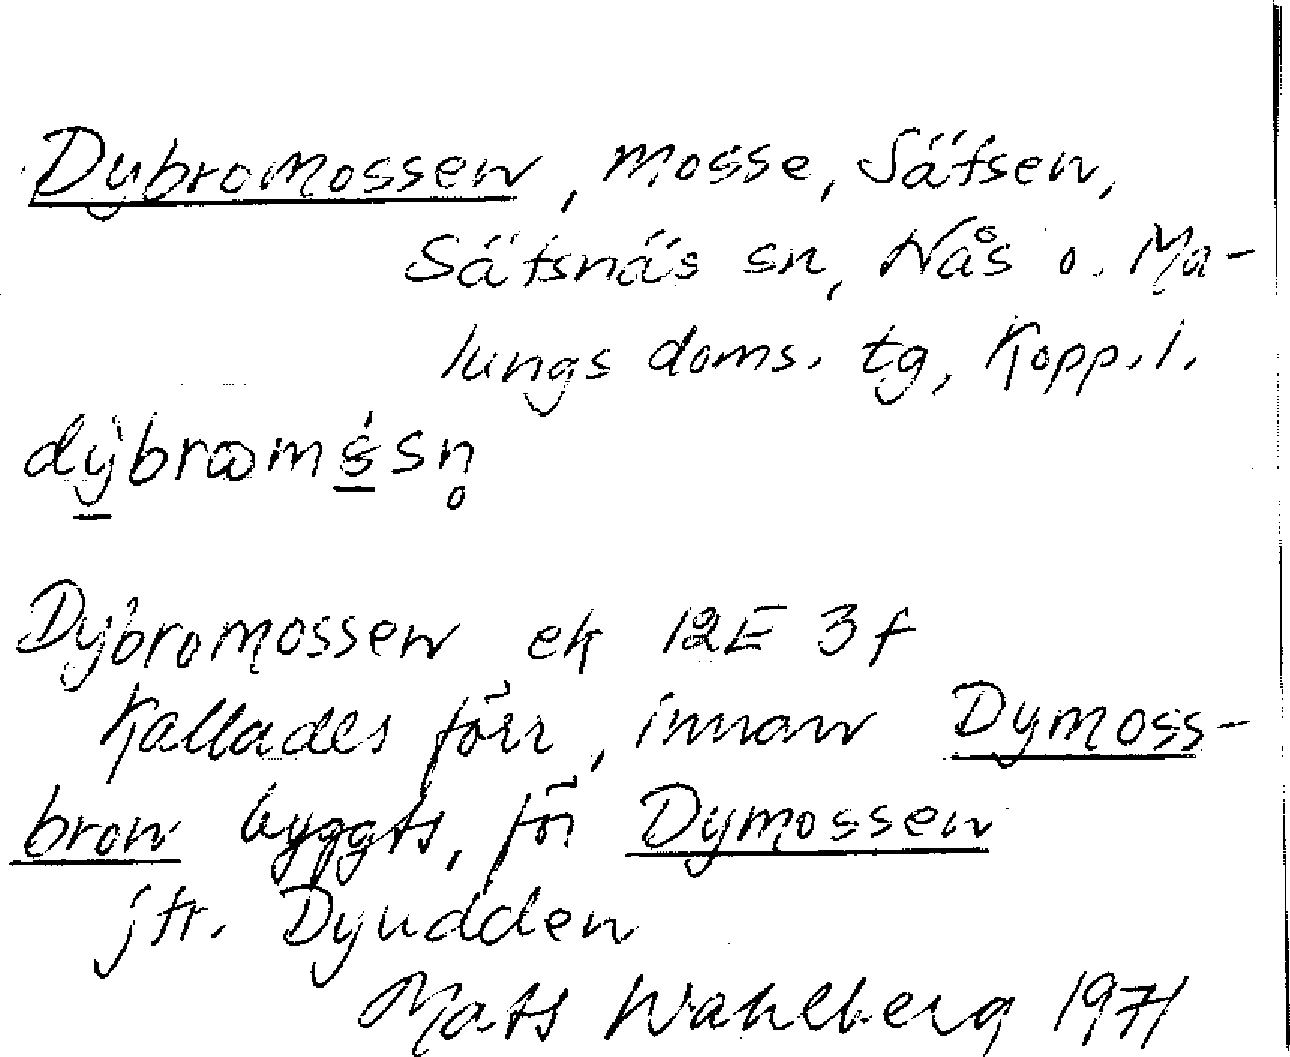 Dybromossen, mosse, Säfsen,
Säfsnäs sn, Nås o. Ma-
lungs doms. tg, Kopp. l.
Dybromossen ek 12E 3f
Kallades förr, innan Dymoss-
bron byggts, för Dymossen
jfr. Dyudden
Mats Wahlberg 1971